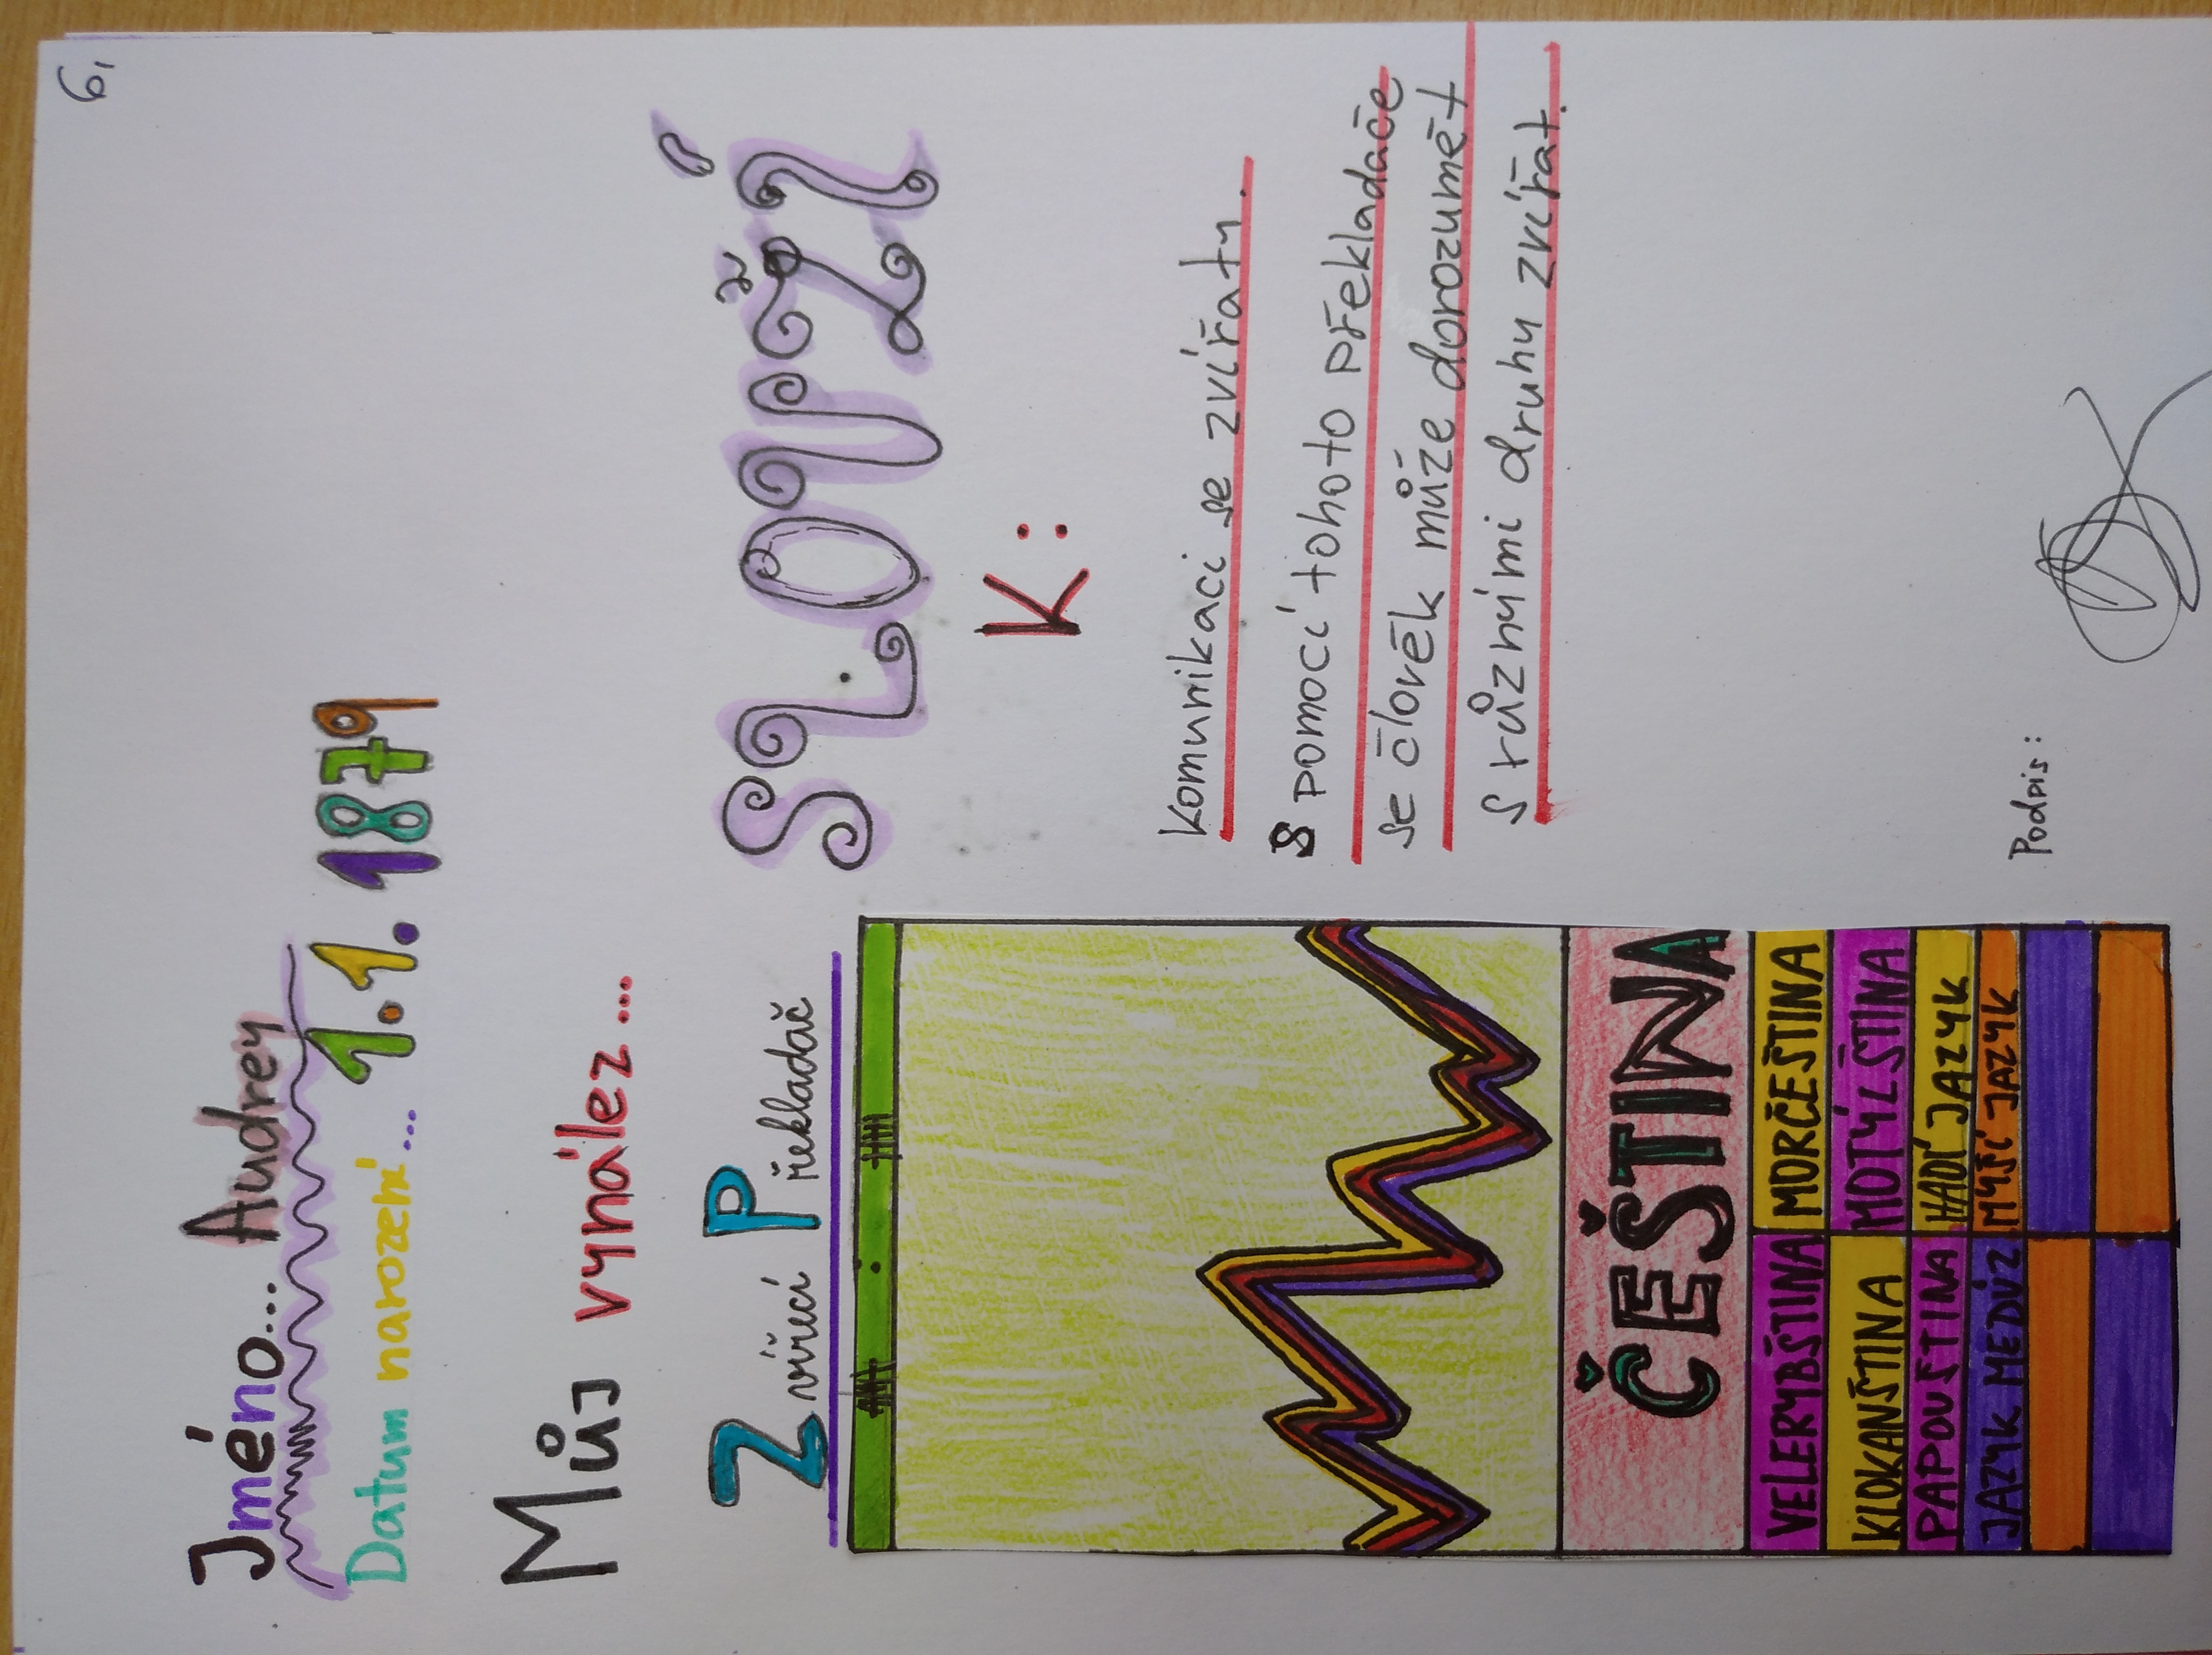 6,
Jméno... Audrey
Datum narození... 1.1.1879
Můj vynález...
Zvířecí Překladač
SLOUŽÍ
K:
Komunikaci se zvířaty.
S pomocí tohoto překladače
se člověk může dorozumět
s různými druhy zvířat.
ČEŠTINA
VELERYBŠTINA MORČEŠTINA
KLOKANŠTINA MOTÝLŠTINA
PAPOUŠTINA HADÍ JAZYK
JAZYK MEDÚZ MYŠÍ JAZYK
Podpis: